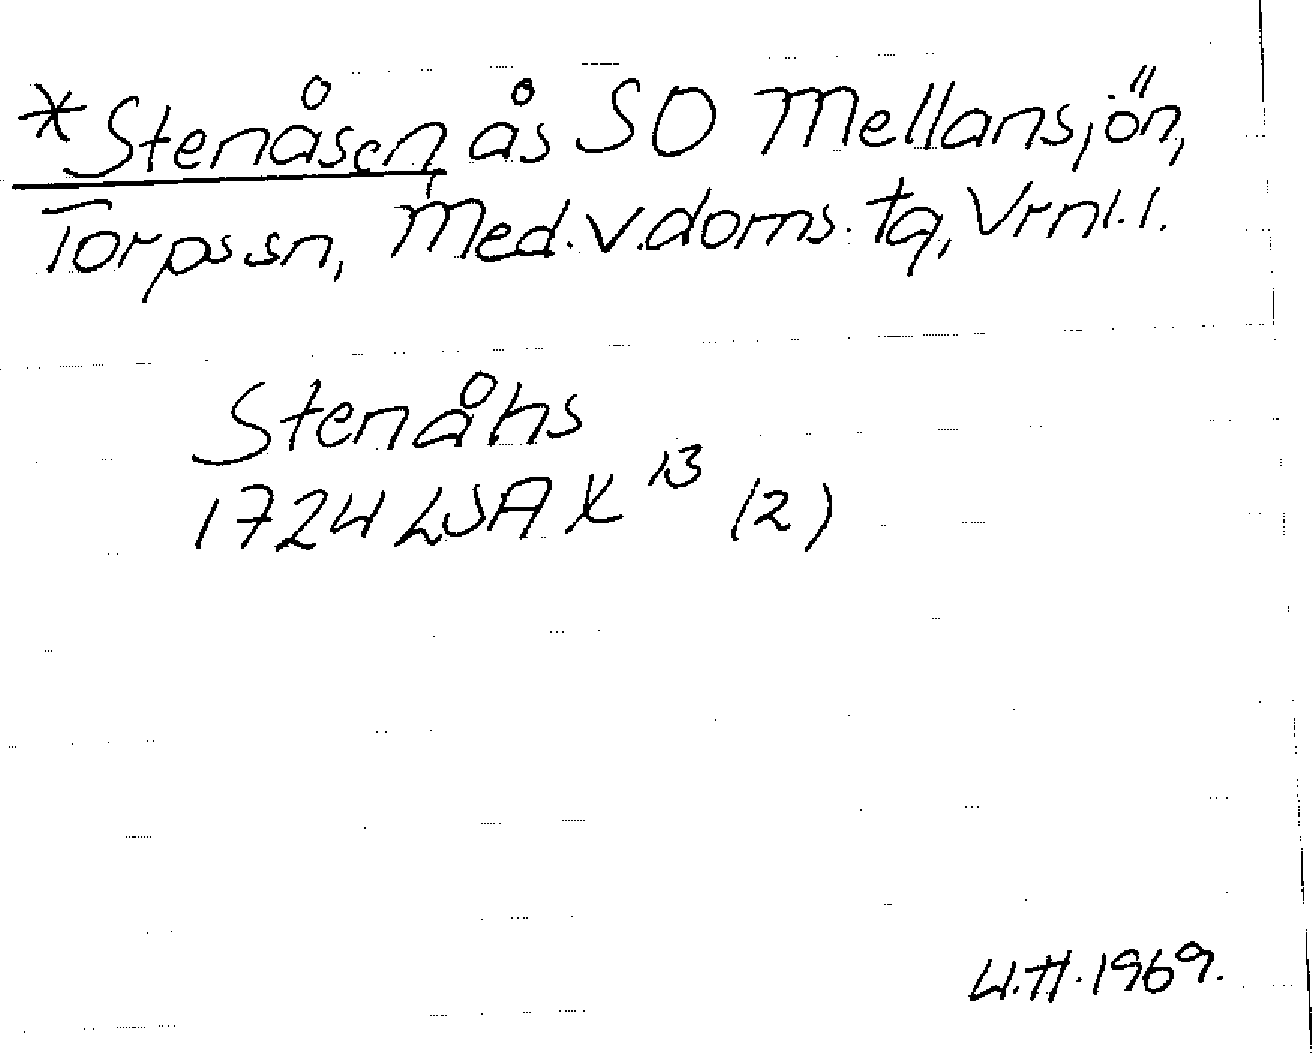 *Stenåsen, ås SO Mellansjön,
Torps sn, Med. v. doms. tg, Vrnl. l.
Stenåhs
1724 LSA X 13 (2)
U.H. 1969.